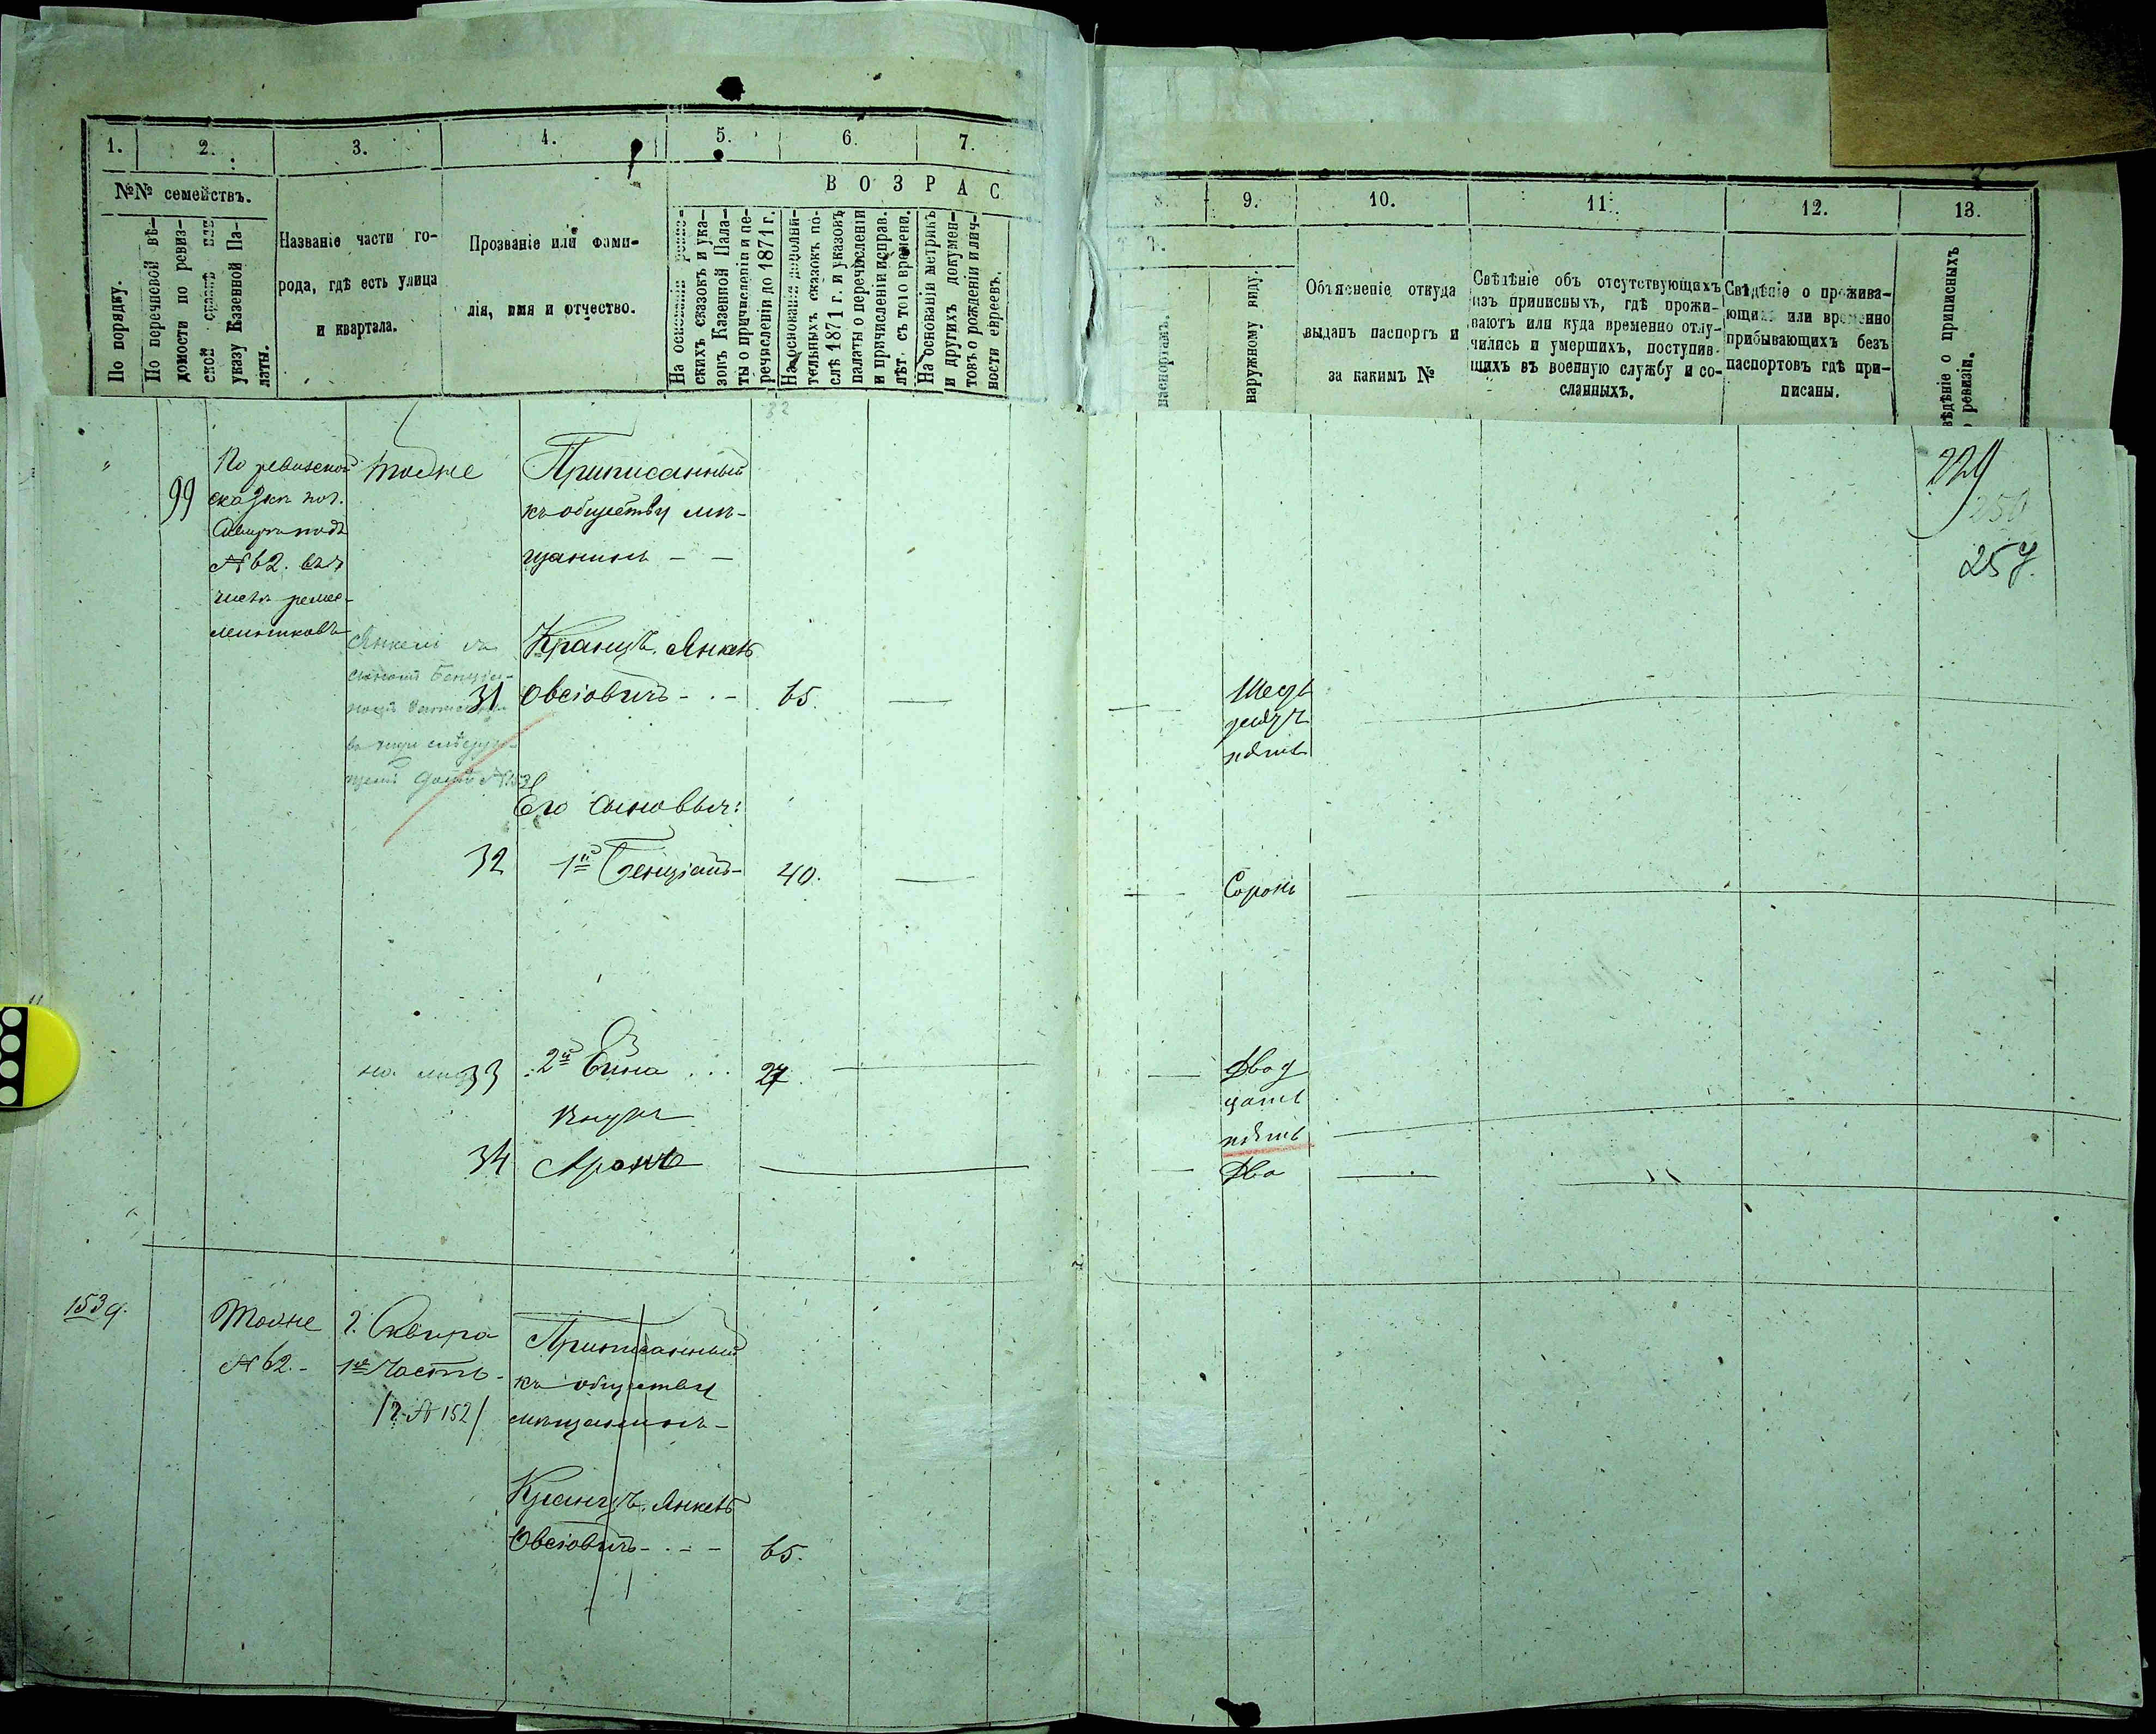 1.
2.
3.
4.
5.
6.
7.
№№ семействъ.
По порядку.
По перечневой вѣ-
домости по ревиз-
ской сказкѣ или
указу Казенной Па-
латы.
Названіе части го-
рода, гдѣ есть улица
и квартала.
Прозваніе или фами-
лія, имя и отчество.
ВОЗРАС
На основаніи ревиз-
скихъ сказокъ и ука-
зовъ Казенной Пала-
ты о причисленіи и пе-
речисленіи до 1871 г.
На основаніи дополни-
тельныхъ сказокъ по-
слѣ 1871 г. и указовъ
палаты о перечисленіи
и причисленіи исправ.
лѣт. съ того времени.
На основаніи метрикъ
и другихъ докумен-
товъ о рожденіи и лич-
ности евреевъ.
9.
10.
11.
12.
13.
Т.
паспортамъ.
наружному виду.
Объясненіе откуда
выданъ паспортъ и
за какимъ №
Свѣдѣніе объ отсутствующихъ
изъ приписныхъ, гдѣ прожи-
ваютъ или куда временно отлу-
чились и умершихъ, поступив-
шихъ въ военную службу и со-
сланныхъ.
Свѣдѣніе о прожива-
ющихъ или временно
прибывающихъ безъ
паспортовъ гдѣ при-
писаны.
вѣдѣніе о приписныхъ
ревизіи.
229
250
257.
99
По ревизской
сказкѣ
подъ
№ 62.
числѣ ремес-
ленниковъ
Тоже
Приписанный
къ обществу мѣ-
щанинъ - -
Кранцъ Янкель
31 Овсіовичъ - - - 65. —
Шесть
десятъ
пять
Его сыновья:
32 1й Бенціонъ - 40. —
Сорокъ
33 2й Ейна ... 27
Двад
цать
пять
Внукъ
34 Аронъ
Два
1539.
Тоже
№ 62. -
г. Сквира
1я Часть -
/г. № 152/
Приписанный
къ обществу
мѣщанинъ -
Кранцъ Янкель
Овсіовичъ - - - 65.